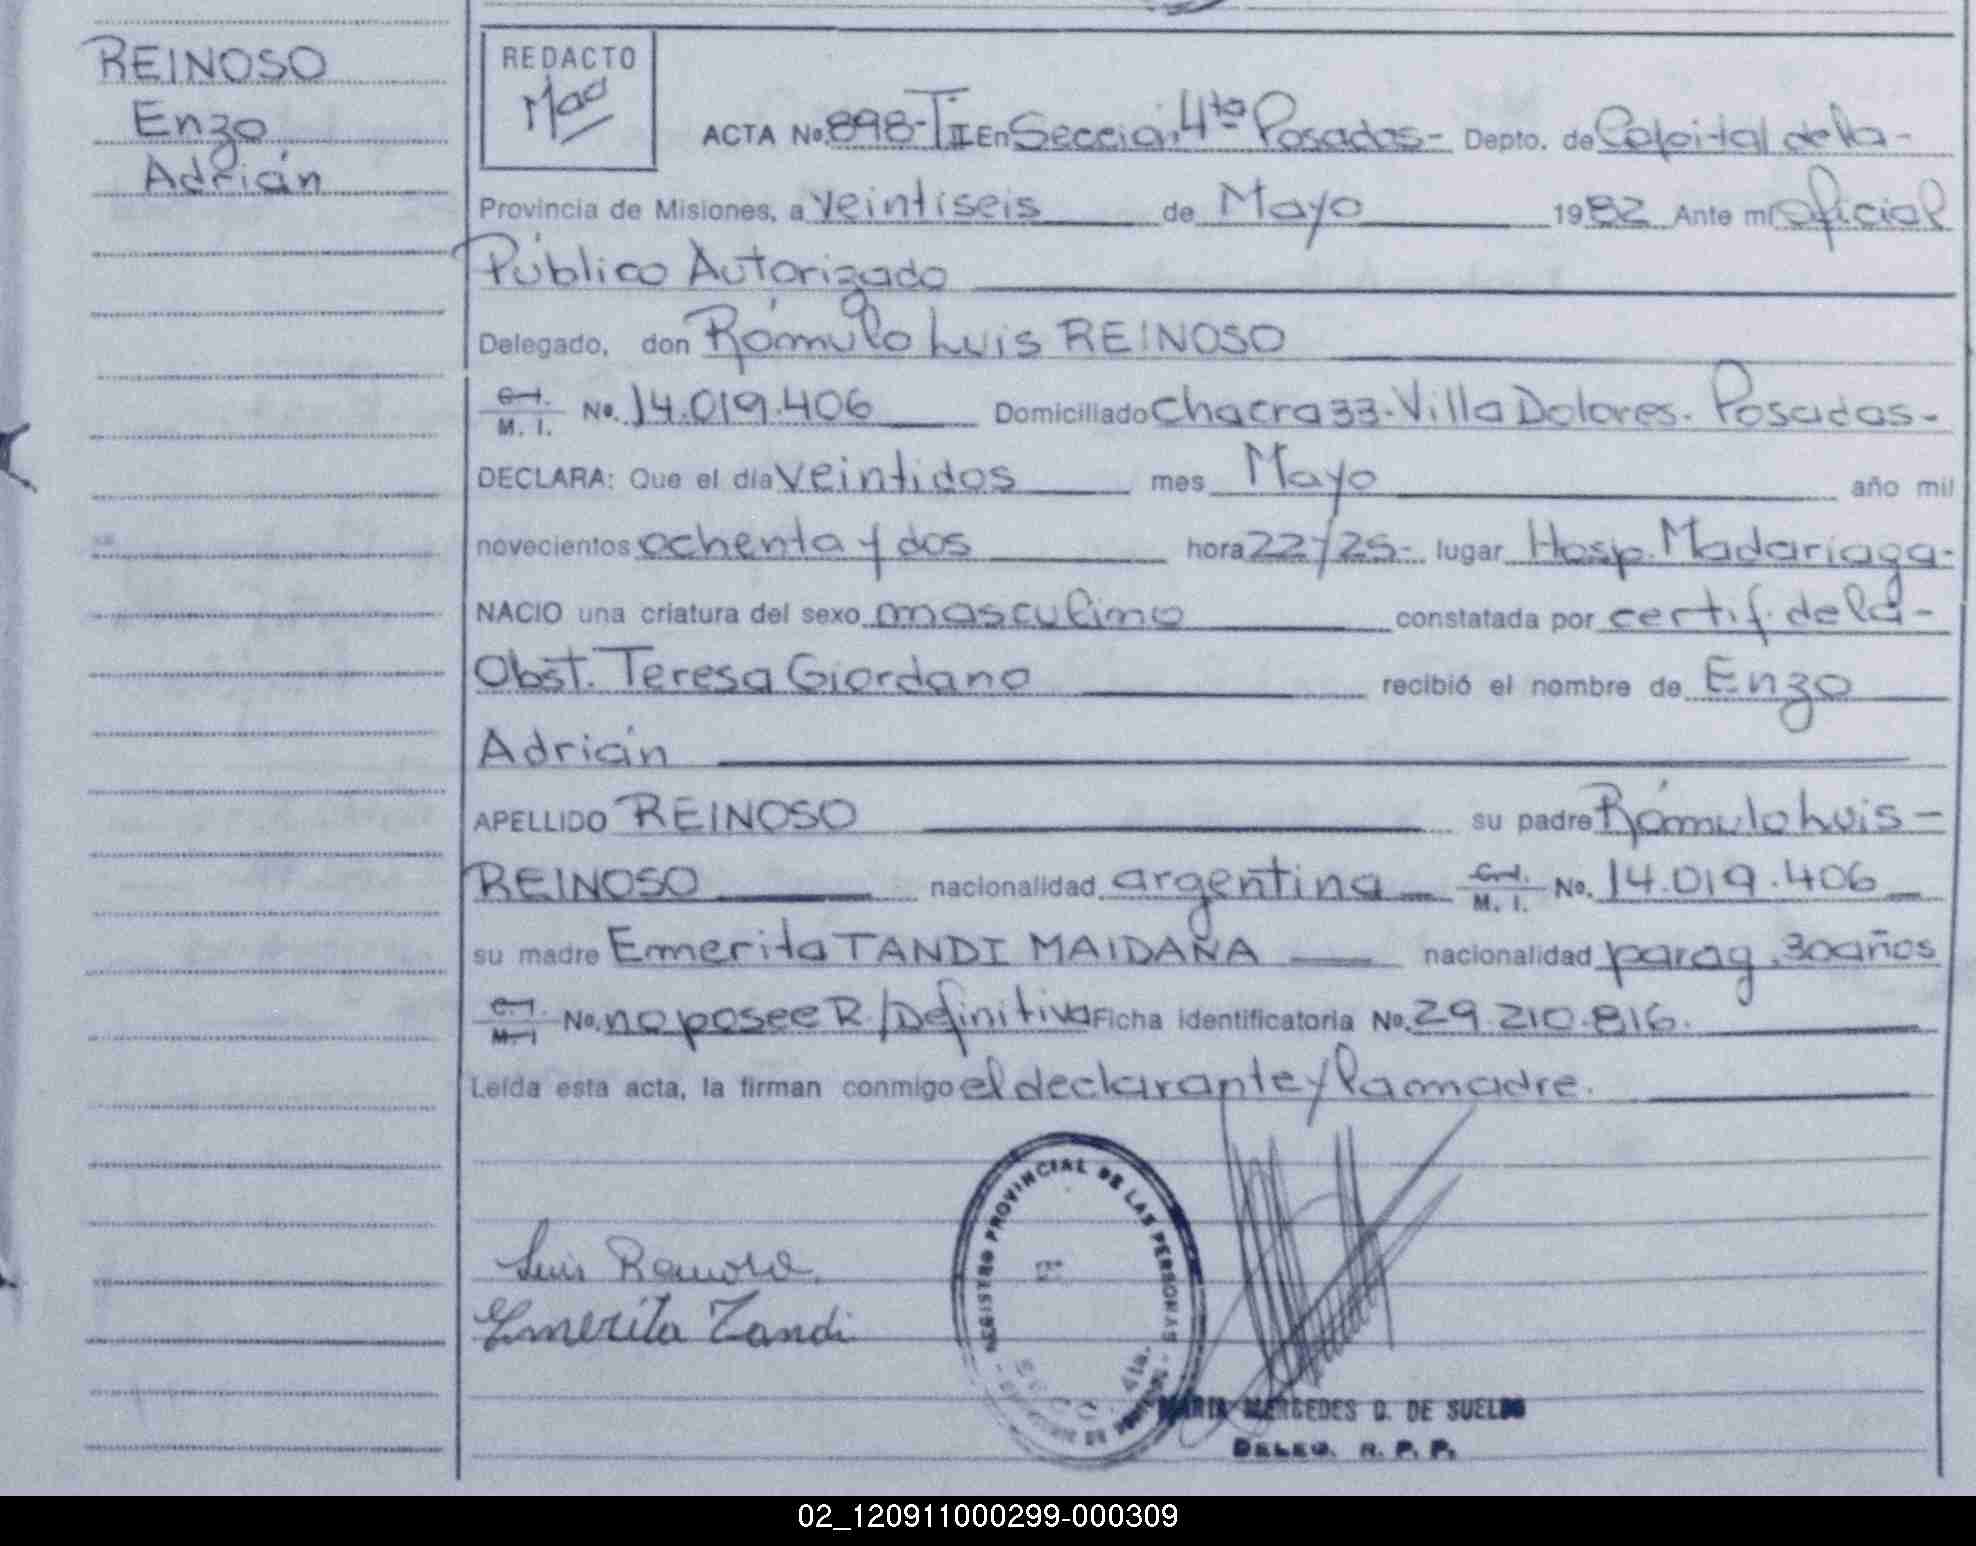 REINOSO
Enzo
Adrián
REDACTO
ACTA No. 898-TII En Sección 4ta Posadas- Depto. de Capital de la-
Provincia de Misiones, a veintiseis de Mayo 1982 Ante mi oficial
Público Autorizado
Delegado, don Rómulo Luis REINOSO
C.I. M. I. No. 14.019.406 Domiciliado Chacra 33-Villa Dolores. Posadas-
DECLARA: Que el día veintidos mes Mayo año mil
novecientos ochenta y dos hora 22/25- lugar Hosp. Madariaga-
NACIO una criatura del sexo masculino constatada por certif. de la-
Obst. Teresa Giordano recibió el nombre de Enzo
Adrián
APELLIDO REINOSO su padre Rómulo Luis-
REINOSO nacionalidad argentina C.I. M. I. No. 14.019.406
su madre Emerita TANDI MAIDANA nacionalidad parag. 30años
C.I. M.I No. no posee R./Definitiva Ficha identificatoria No. 29.210.816.
Leída esta acta, la firman conmigo el declarante y la madre.
REGISTRO PROVINCIAL DE LAS PERSONAS
4ta.
Luis
Emerita Tandi
MARIA MERCEDES D. DE SUELDO
DELEG. R. P. P.
02_120911000299-000309